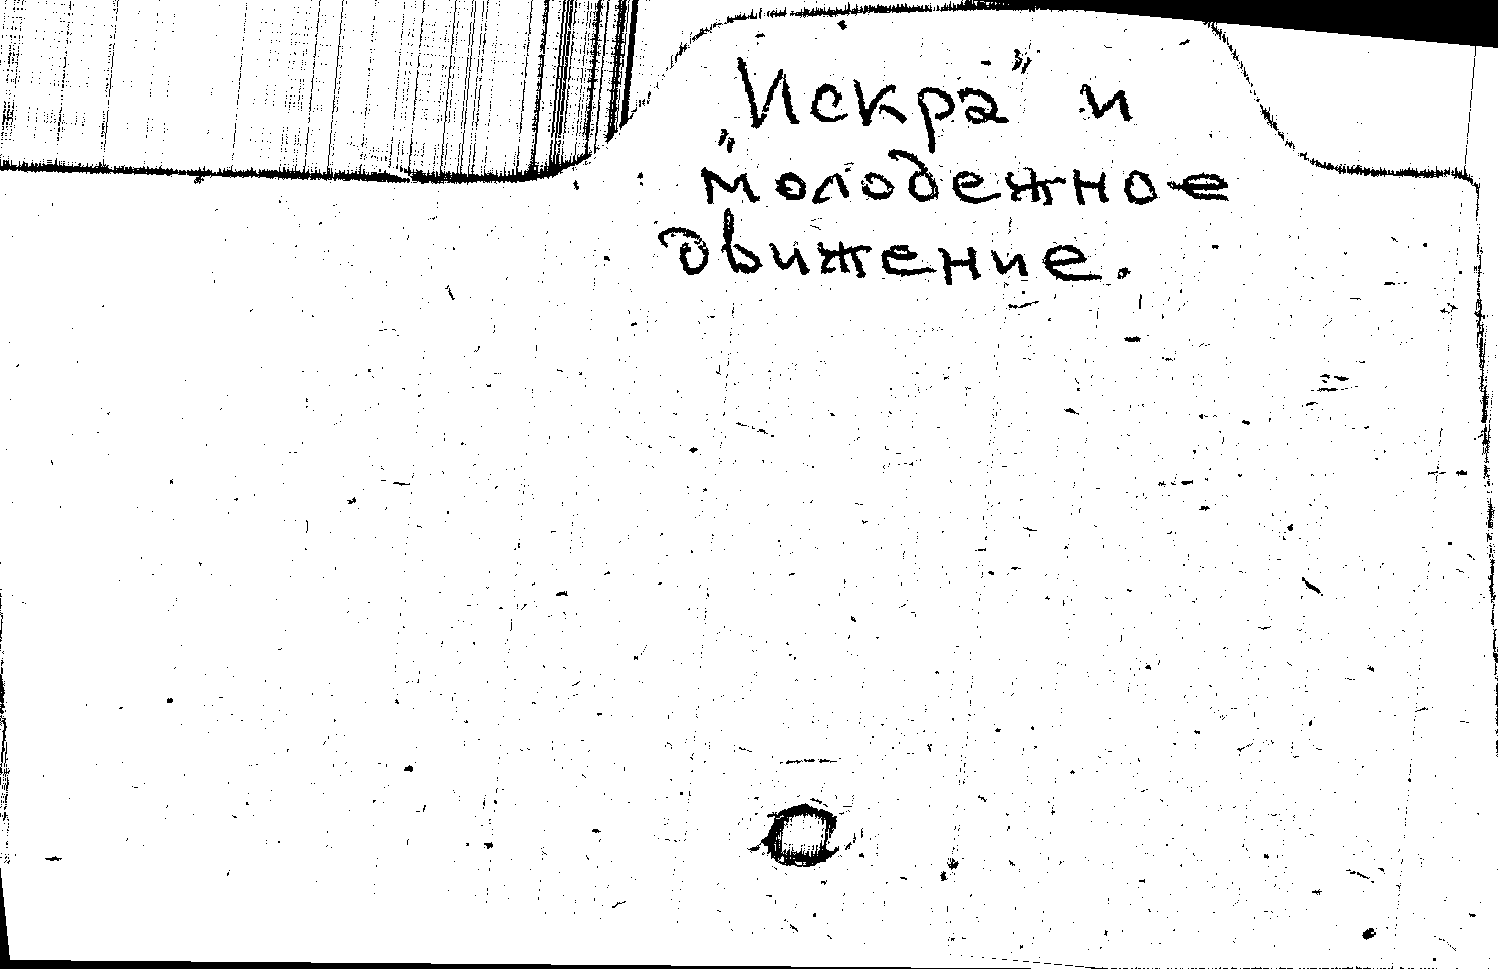 „Искра” и
молодежное
движение.